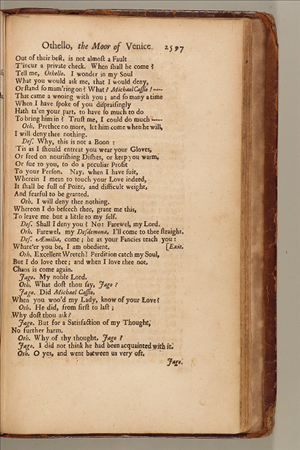 Othello, the Moor of Venice. 2597
Out of their best, is not almost a Fault
T'incur a private check. When shall he come?
Tell me, Othello. I wonder in my Soul
What you would ask me, that I would deny,
Or stand so mam'ring on? What? Michael Cassio!—
That came a wooing with you; and so many a time
When I have spoke of you dispraisingly
Hath ta'en your part, to have so much to do
To bring him in? Trust me, I could do much —
Oth. Prethee no more, let him come when he will,
I will deny thee nothing.
Des. Why, this is not a Boon:
'Tis as I should entreat you wear your Gloves,
Or feed on nourishing Dishes, or keep you warm,
Or sue to you, to do a peculiar Profit
To your Person. Nay, when I have suit,
Wherein I mean to touch your Love indeed,
It shall be full of Poize, and difficult weight,
And fearful to be granted.
Oth. I will deny thee nothing.
Whereon I do beseech thee, grant me this,
To leave me but a little to my self.
Des. Shall I deny you? No: Farewel, my Lord.
Oth. Farewel, my Desdemona, I'll come to thee straight.
Des. Æmilia, come; be as your Fancies teach you:
Whate'er you be, I am obedient. [Exit.
Oth. Excellent Wretch! Perdition catch my Soul,
But I do love thee; and when I love thee not,
Chaos is come again.
Jago. My noble Lord.
Oth. What dost thou say, Jago?
Jago. Did Michael Cassio,
When you woo'd my Lady, know of your Love?
Oth. He did, from first to last;
Why dost thou ask?
Jago. But for a Satisfaction of my Thought,
No further harm.
Oth. Why of thy thought, Jago?
Jago. I did not think he had been acquainted with it.
Oth. O yes, and went between us very oft.
Jago.